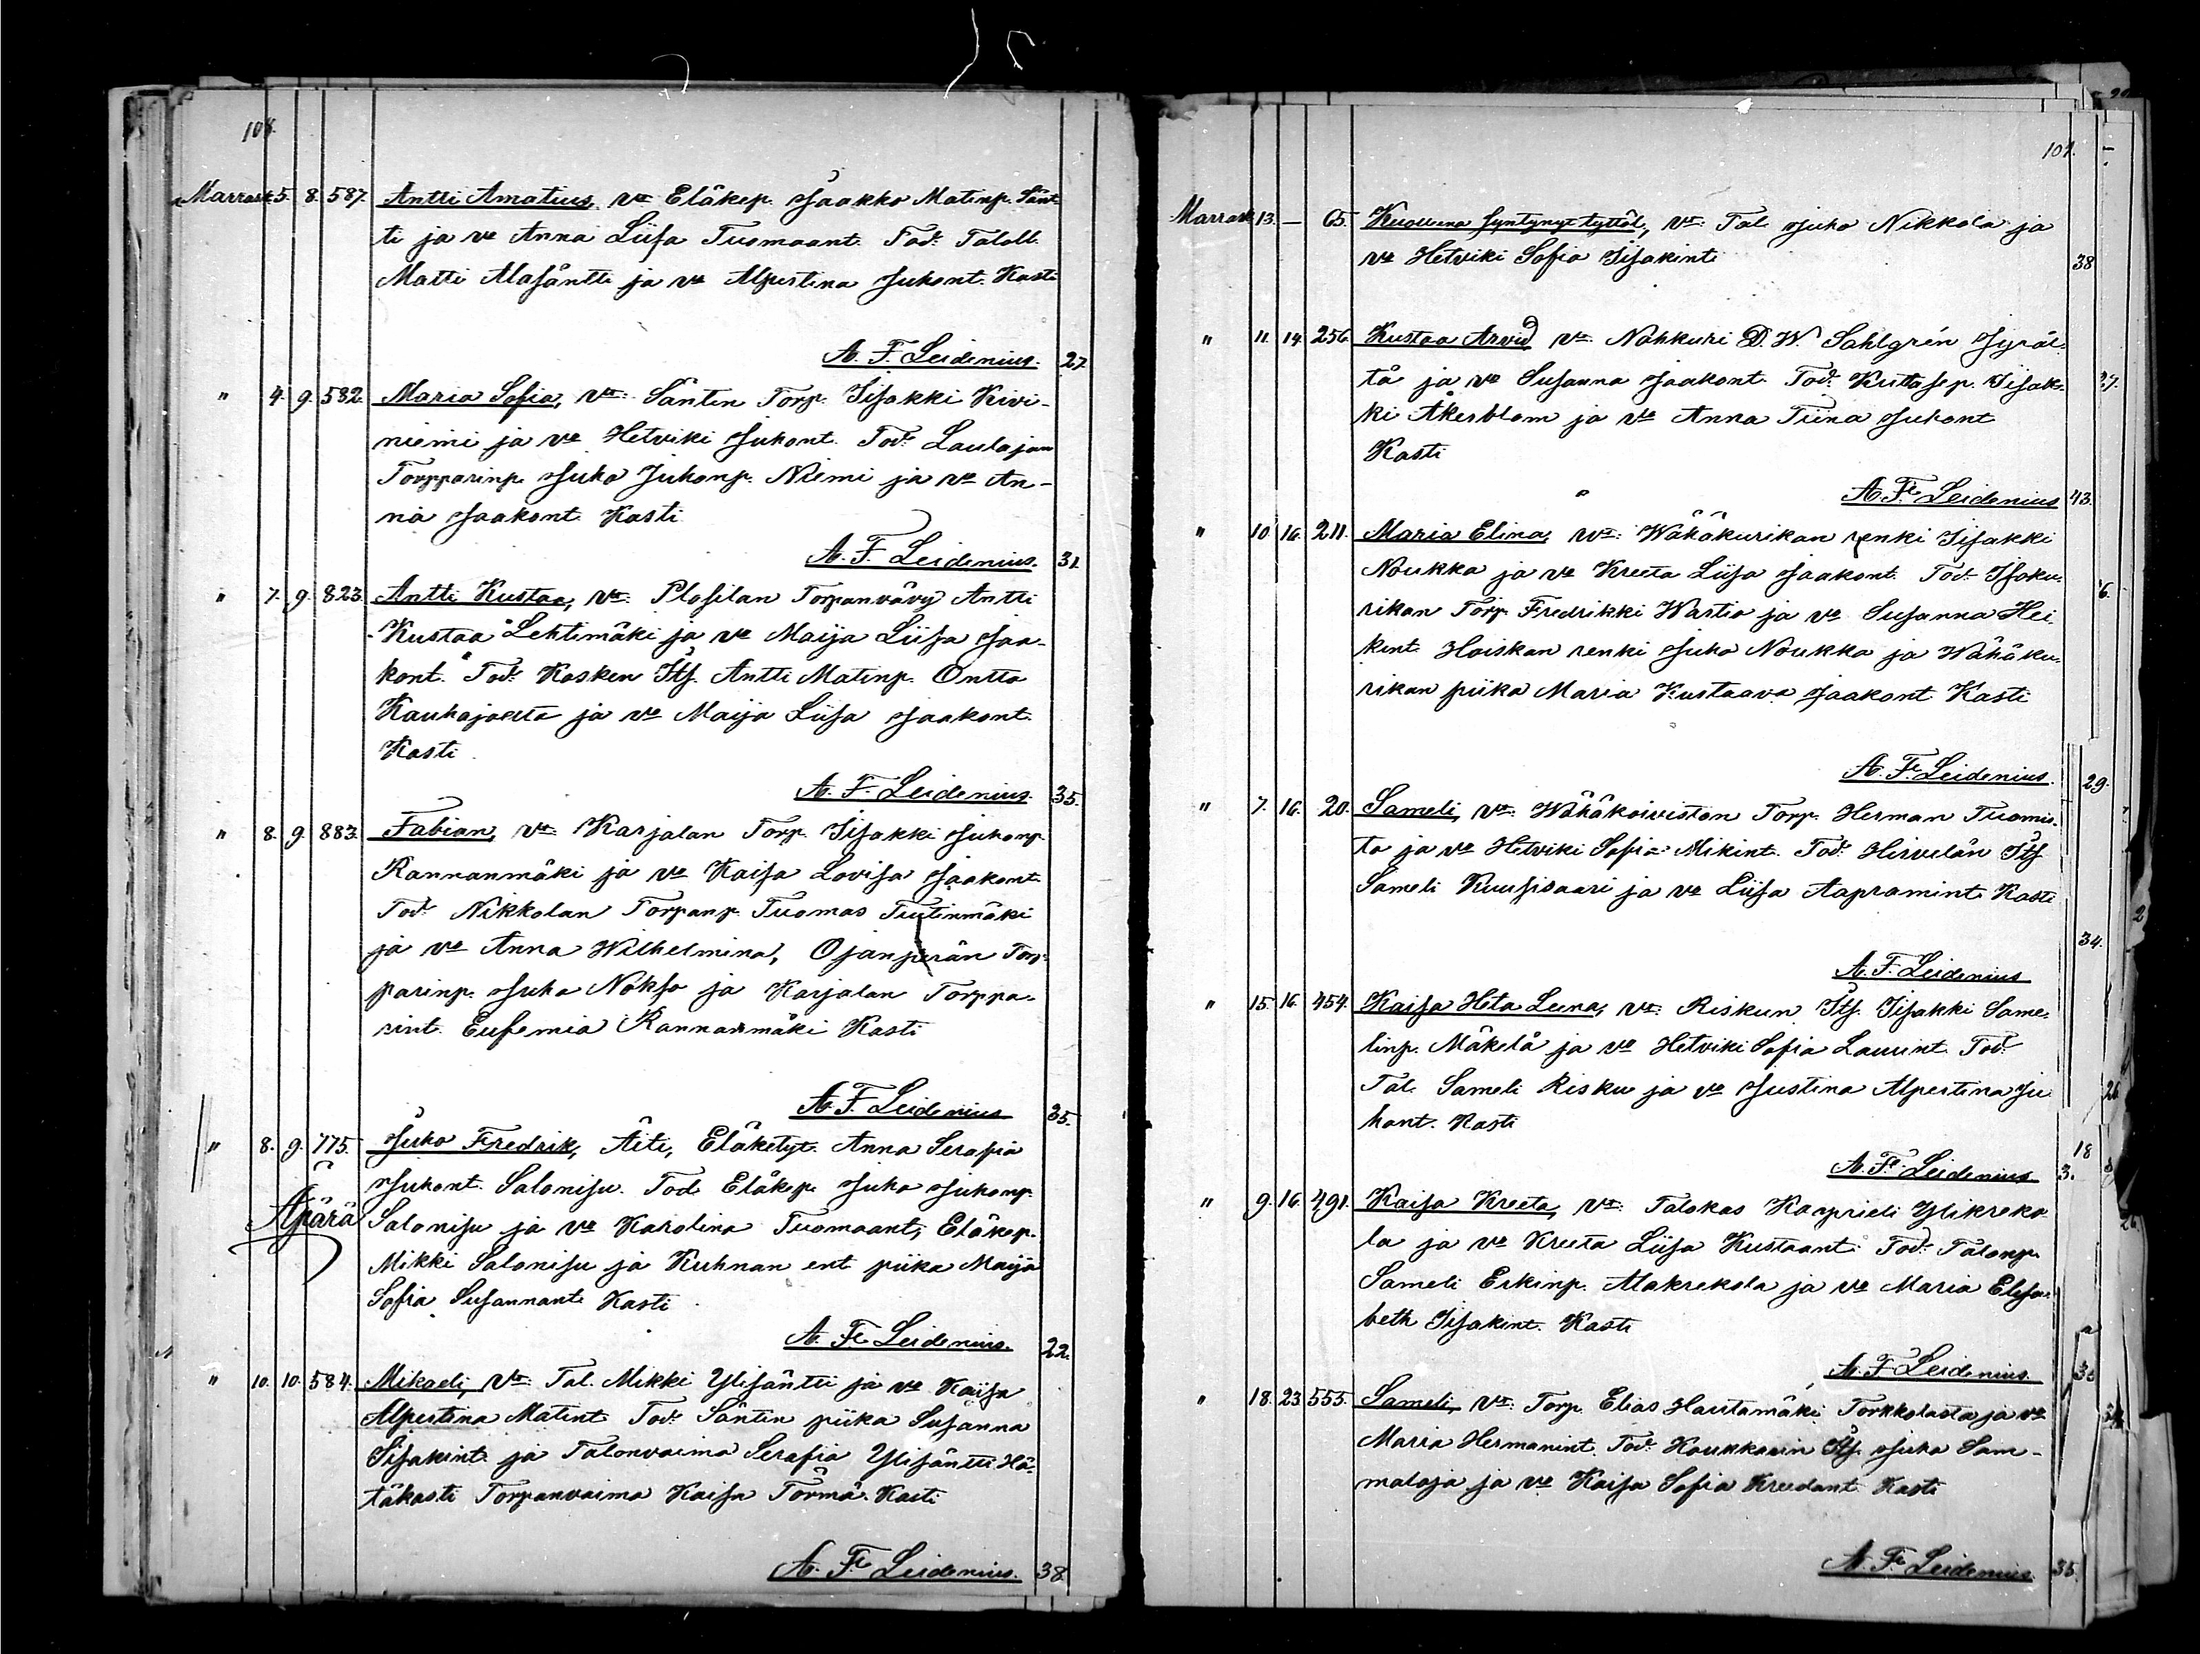 108.
Marrask. 5. 8. 587. Antti Amatius, vt: Eläkep. Jaakko Matinp. Sänt-
ti ja vo Anna Liisa Tuomaant. Tod: Taloll.
Matti Alasäntti ja vo Alpertina Juhont. Kasti
A. F. Leidenius. 27.
" 4. 9. 582. Maria Sofia, vt: Säntin Torp. Iisakki Kivi-
niemi ja vo Hetviki Juhont. Tod: Laulajan
Torpparinp. Juho Juhonp. Niemi ja vo An-
na Jaakont. Kasti
A. F. Leidenius. 31.
" 7. 9. 823. Antti Kustaa, vt: Plosilan Torpanvävy Antti
Kustaa Lehtimäki ja vo Maija Liisa Jaa-
kont. Tod: Kosken Its. Antti Matinp. Ontto
Kauhajoelta ja vo Maija Liisa Jaakont.
Kasti.
A. F. Leidenius. 35.
" 8. 9. 883. Fabian, vt: Karjalan Torp. Iisakki Juhonp.
Rannanmäki ja vo Kaisa Lovisa Jaakont.
Tod: Nikkolan Torpanp. Tuomas Tuutinmäki
ja vo Anna Wilhelmina, Ojanperän Torp-
parinp. Juho Nokso ja Karjalan Torppa-
rint. Eufemia Rannanmäki Kasti
A. F. Leidenius 35.
" 8. 9. 775. Juho Fredrik, Äiti, Eläketyt. Anna Serafia
Juhont. Salonisu. Tod. Eläkep. Juho Juhonp.
Äpärä Salonisu ja vo Karolina Tuomaant, Eläkep.
Mikki Salonisu ja Kuhnan ent piika Maija
Sofia Susannant. Kasti
A. F. Leidenius. 22.
" 10. 10. 584. Mikaeli, vt: Tal. Mikki Ylisäntti ja vo Kaisa
Alpertina Matint. Tod: Säntin piika Susanna
Iisakint. ja Talonvaimo Serafia Ylisäntti Hä-
täkasti Torpanvaimo Kaisa Törmä. Kasti
A. F. Leidenius. 38.
109.
Marrask. 13. — 65. Kuollena syntynyt tyttöl., vt: Tal. Juho Nikkola ja
vo Hetviki Sofia Iisakint. 38
" 11. 14. 256. Kustaa Arvid vt: Nahkuri D. W. Sahlgrén Jyräl-
tä ja vo Susanna Jaakont. Tod: Kultasep. Iisak-
ki Åkerblom ja vo Anna Tiina Juhont
Kasti
A. F. Leidenius 43.
" 10. 16. 211. Maria Elina, vt: Wähäkurikan renki Iisakki
Noukka ja vo Kreeta Liisa Jaakont. Tod: Isoku-
rikan Torp. Fredrikki Wartio ja vo Susanna Hei-
kint. Hoiskan renki Juho Noukka ja Wähäku-
rikan piika Maria Kustaava Jaakont Kasti
A. F. Leidenius. 29.
" 7. 16. 20. Sameli, vt: Wähäkoiviston Torp. Herman Tuomis-
to ja vo Hetviki Sofia Mikint. Tod: Hirvelän Its.
Sameli Kuusisaari ja vo Liisa Aapramint. Kasti
34.
A. F. Leidenius
" 15. 16. 454. Kaisa Heta Leena, vt: Riskun Its. Iisakki Same-
linp. Mäkelä ja vo Hetviki Sofia Laurint. Tod:
Tal. Sameli Risku ja vo Justina Alpertina Ju-
hont. Kasti
A. F. Leidenius
" 9. 16. 491. Kaisa Kreeta, vt: Talokas Kaaprieli Ylikreko-
la ja vo Kreeta Liisa Kustaant. Tod: Talonp.
Sameli Erkinp. Alakrekola ja vo Maria Elisa-
beth Iisakint. Kasti
A. F. Leidenius.
" 18. 23. 553. Sameli, vt: Torp. Elias Hautamäki Torkkolasta ja vo
Maria Hermanint. Tod: Koukkarin Its. Juho Sam-
maloja ja vo Kaisa Sofia Kreedant. Kasti
A. F. Leidenius. 35.